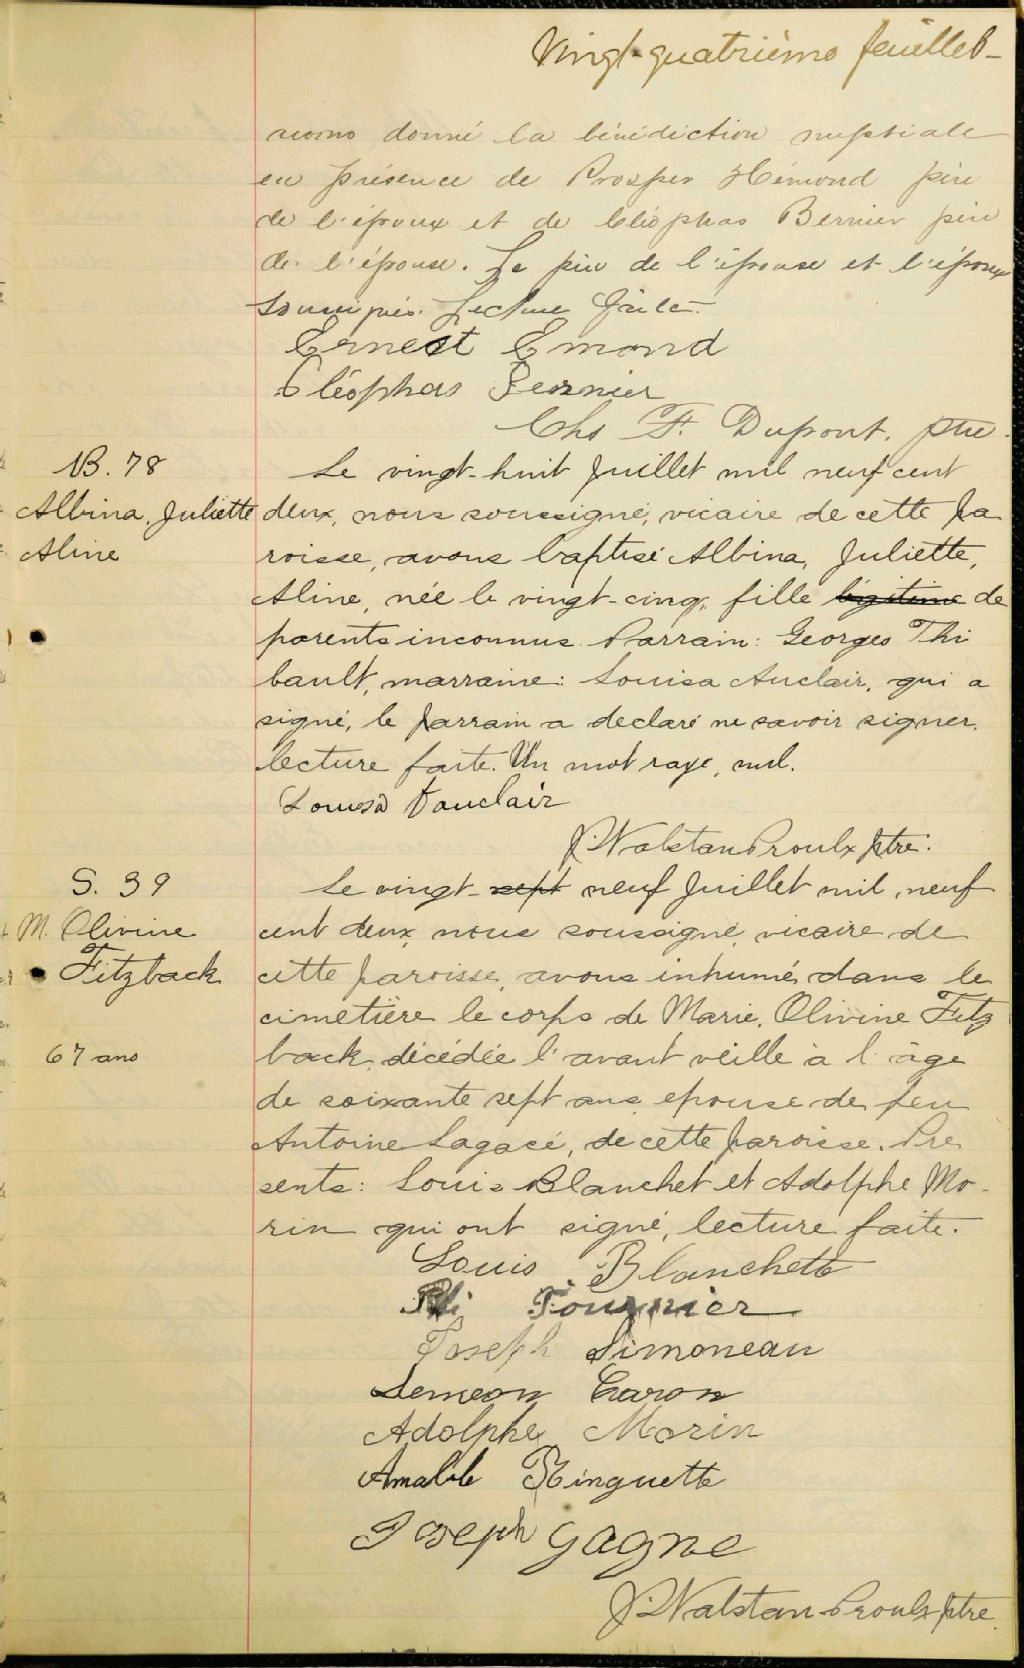 Vingt-quatrième feuillet-
avons donné la bénédiction nuptiale
en présence de Prosper Hémond père
de l'époux et de Cléophas Bernier père
de l'épouse. Le père de l'épouse et l'époux
soussignés. Lecture faite.
Ernest Emond
Cléophas Bernier
Chs F. Dupont, ptre.
B. 78
Albina, Juliette
Aline
Le vingt-huit Juillet mil neuf cent
deux, nous soussigné, vicaire de cette pa
roisse, avons baptisé Albina, Juliette,
Aline, née le vingt-cinq, fille légitime de
parents inconnus. Parrain: Georges Thi
bault, marraine: Louisa Auclair, qui a
signé, le parrain a declaré ne savoir signer.
lecture faite. Un mot rayé, nul.
Louisa Vauclair
J. Walstan Proulx ptre.
S. 39
M. Olivine
Fitzback
67 ans
Le vingt-sept neuf Juillet mil neuf
cent deux, nous soussigné, vicaire de
cette paroisse, avons inhumé dans le
cimetière le corps de Marie, Olivine Fitz
back, décédée l'avant veille à l'âge
de soixante sept ans, epouse de feu
Antoine Lagacé, de cette paroisse. Pre
sents: Louis Blanchet et Adolphe Mo-
rin qui ont signé, lecture faite.
Louis Blanchette
Fournier
Joseph Simoneau
Semeon Caron
Adolphe Morin
Amable Ringuette
Joseph Gagne
J. Walstan Proulx ptre.